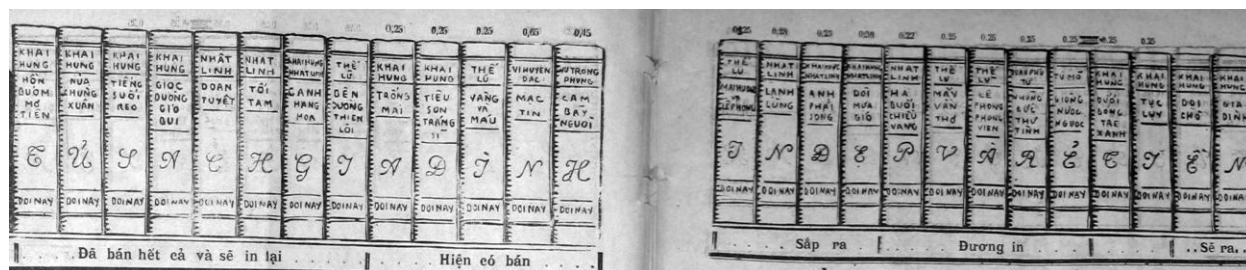 0,25 0,25 0.25 0,65 0,45
KHAI
HUNG
HỒN
BUỚM
MƠ
TIÊN
T
DOINAY
KHAI
HUNG
NỬA
CHUNG
XUÂN
Ủ
DOINAY
KHAI
HUNG
TIẾNG
SUỐI
REO
S
DOINAY
KHAI
HUNG
GIỌC
ĐUỜNG
GIÓ
BỤI
A
DOINAY
NHẤT
LINH
ĐOẠN
TUYỆT
C
DOINAY
NHẤT
LINH
TỐI
TĂM
H
DOINAY
KHAIHUNG
NHATLINH
GANH
HANG
HOA
G
DOINAY
THẾ
LỮ
BÊN
ĐUỜNG
THIÊN
LÔI
I
DOINAY
KHAI
HUNG
TRỐNG
MÁI
A
DOINAY
KHAI
HUNG
TIÊU
SƠN
TRÁNG
SĨ
Đ
DOINAY
THẾ
LỮ
VANG
VA
MAU
Ì
DOINAY
VIHUYEN
ĐAC
MẠC
TIN
N
DOINAY
VUTRONG
PHUNG
CAM
BAY
NGUOI
H
DOINAY
Đã bán hết cả và sẽ in lại
Hiện có bán
0.25 0.25 0.25 0.25 0.25
THẾ
LỮ
MAIHUONG
VA
LEPHONG
I
DOINAY
NHẤT
LINH
LẠNH
LÙNG
N
DOINAY
KHAIHUNG
NHATLINH
ANH
PHẢI
SỐNG
Đ
DOINAY
KHAIHUNG
NHATLINH
ĐỜI
MUA
GIÓ
E
DOINAY
NHẤT
LINH
HAI
BUỔI
CHIỀU
VANG
P
DOINAY
THẾ
LỮ
MẤY
VẦN
THƠ
V
DOINAY
THẾ
LỮ
LÊ
PHONG
PHONG
VIÊN
À
DOINAY
NHUNG
BỨC
THU
TÌNH
R
DOINAY
TÚ MỠ
GIÒNG
NUOC
NGUOC
Ẻ
DOINAY
KHAI
HUNG
ĐUỔI
SONG
TRE
XANH
T
DOINAY
KHAI
HUNG
TỤC
LUY
I
DOINAY
KHAI
HUNG
ĐỢI
CHỜ
Ề
DOINAY
GIA
ĐÌNH
N
Sắp ra
Đương in
Sẽ ra